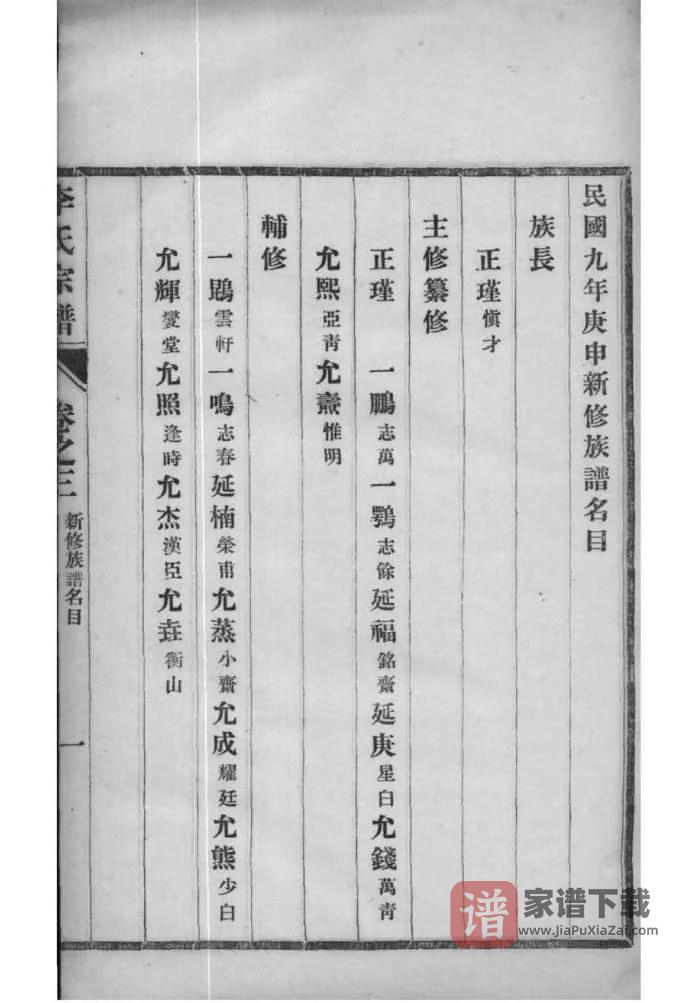 民國九年庚申新修族譜名目
族長
正瑾 慎才
主修纂修
正瑾 一鵬 志萬 一鶚 志餘 延福 銘齋 延庚 星白 允錢 萬青
允熙 亞青 允燾 惟明
輔修
一鶤 雲軒 一鳴 志春 延楠 榮甫 允蒸 小齋 允成 耀廷 允熊 少白
允輝 燮堂 允照 逢時 允杰 漢亞 允垚 衡山
李氏宗譜 卷之三 新修族譜名目 一
谱 家谱下载
www.JiaPuXiaZai.com